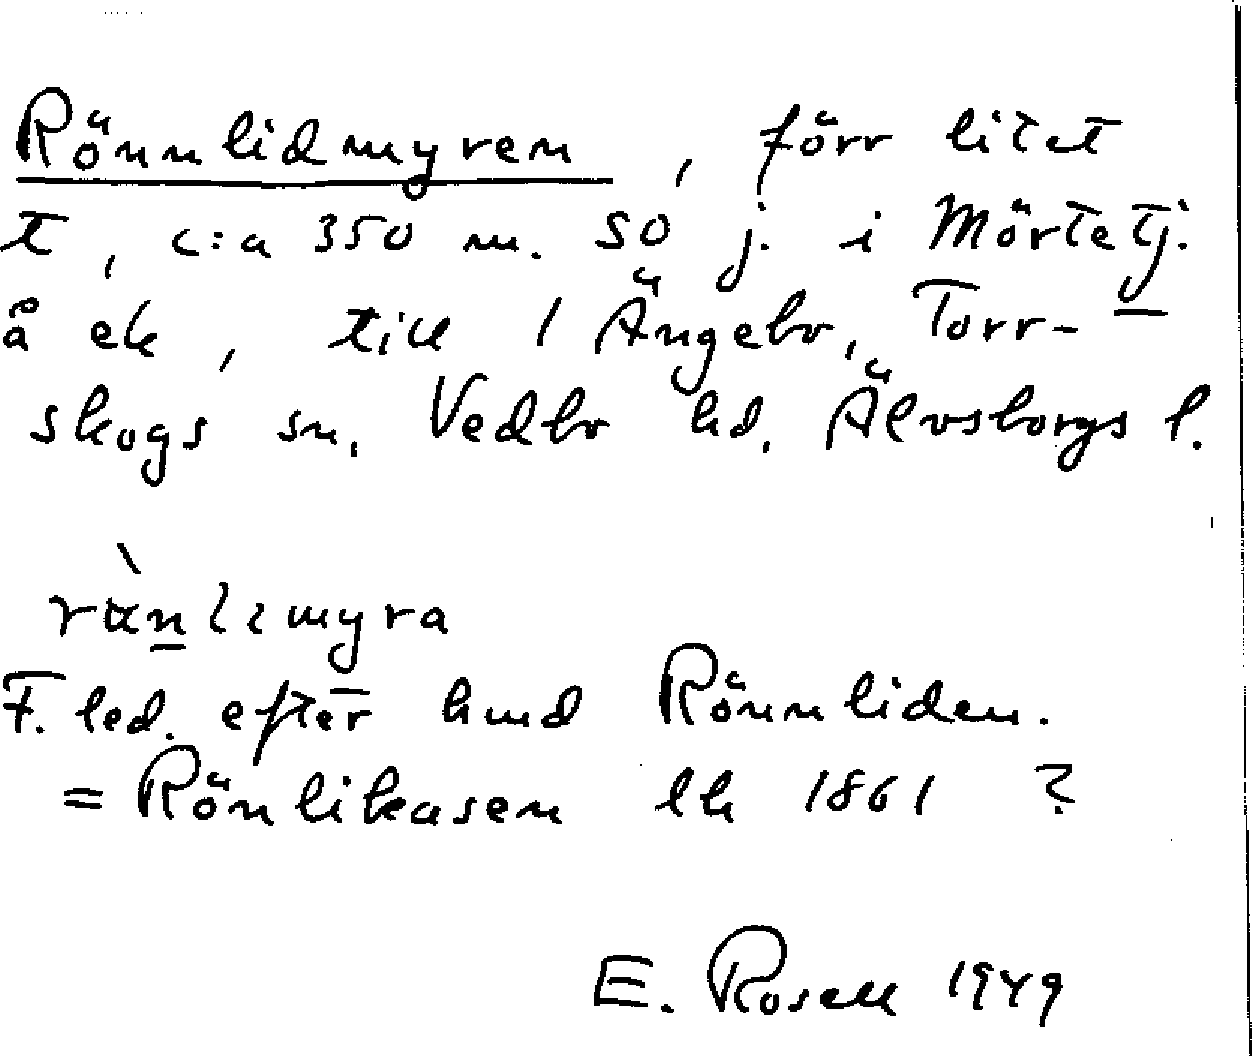 Rönnlidmyren, förr litet
t, c:a 350 m. SO j. i Mörtetj.
å ek, till 1 Ängebo, Torr-
skogs sn. Vedbo hd. Älvsborgs l.
F. led. efter hmd Rönnliden.
= Rönlikasen lk 1861 ?
E. Rosell 1949